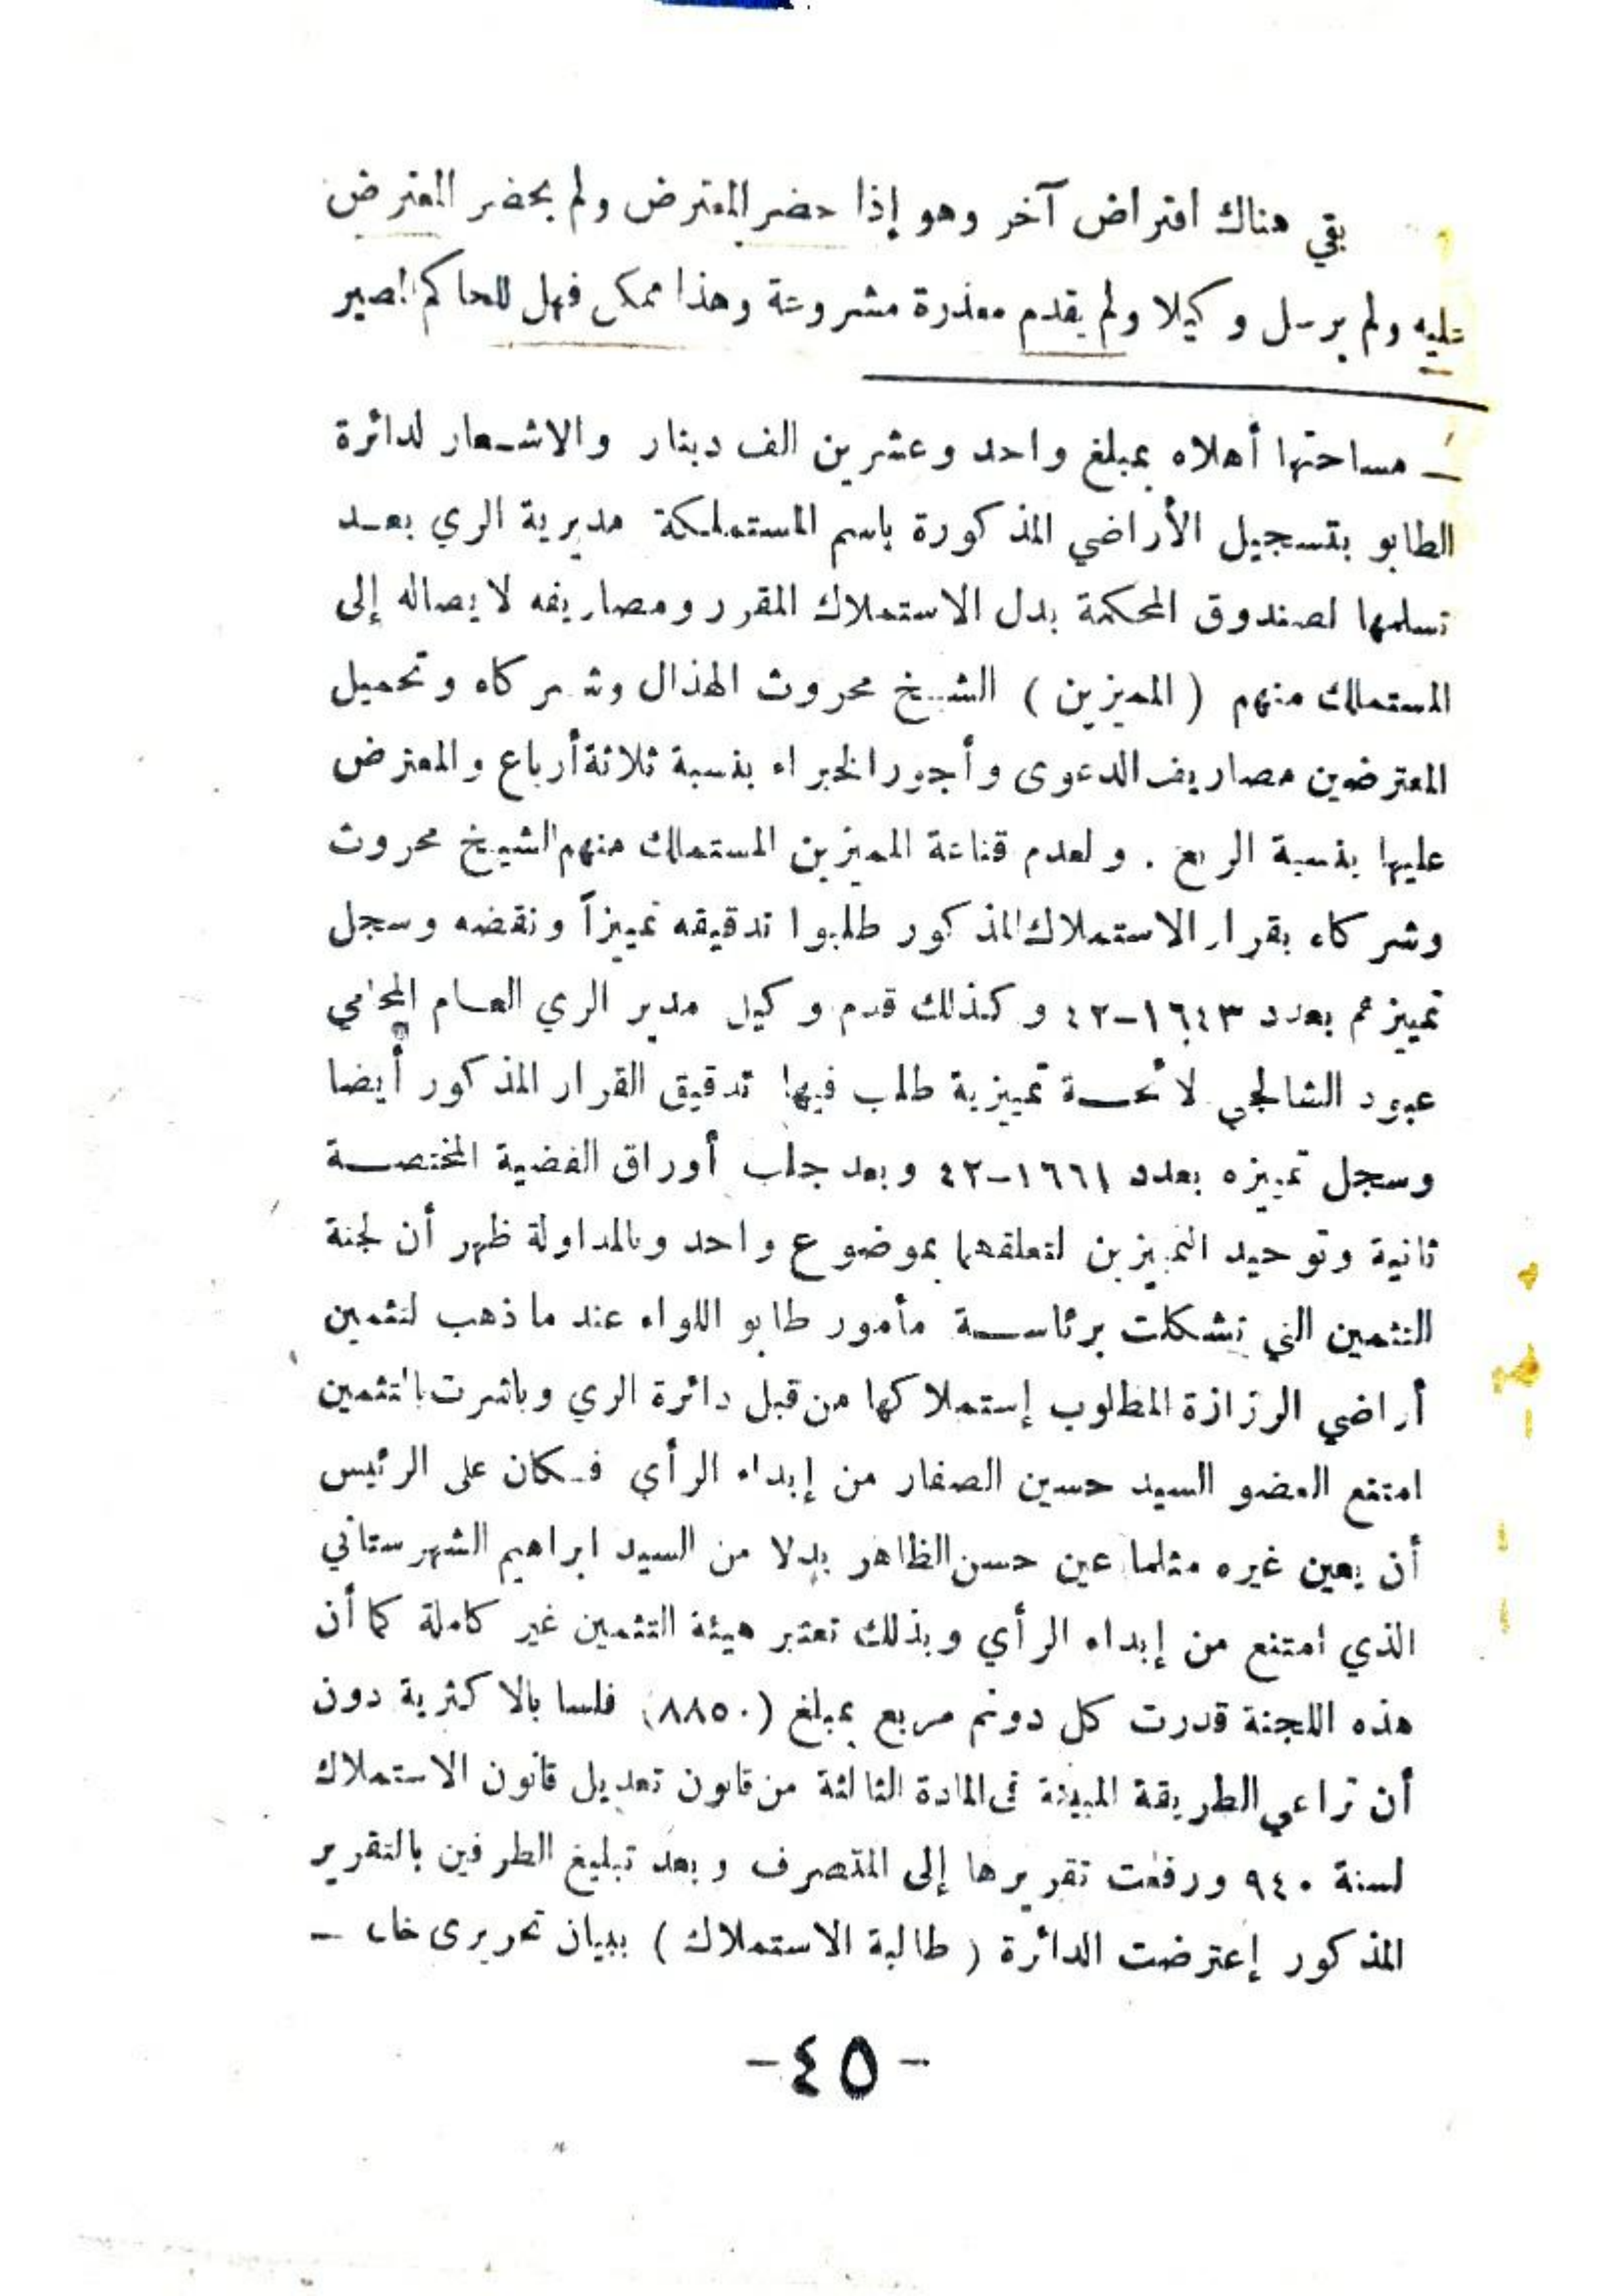 بقي هناك افتراض آخر وهو إذا حضر المعترض ولم يحضر المعترض
عليه ولم يرسل وكيلا ولم يقدم معذرة مشروعة وهذا ممكن فهل للحاكم اصير
ــ مساحتها أهلاه بمبلغ واحد وعشرين الف دينار والاشـعار لدائرة
الطابو بتسجيل الأراضي المذكورة باسم المستملكة مديرية الري بعـد
تسلمها لصندوق المحكمة بدل الاستملاك المقرر ومصاريفه لايصاله إلى
المستملك منهم ( المميزين ) الشيخ محروث الهذال وشركاه وتحميل
المعترضين مصاريف الدعوى وأجور الخبراء بنسبة ثلاثة أرباع والمعترض
عليها بنسبة الربع . ولعدم قناعة المميزين المستملك منهم الشيخ محروث
وشركاه بقرار الاستملاك المذكور طلبوا تدقيقه تمييزاً ونقضه وسجل
تمييزهم بعدد ١٦٤٣-٤٢ وكذلك قدم وكيل مدير الري العام المحامي
عبود الشالجي لائحـة تمييزية طلب فيها تدقيق القرار المذكور أيضا
وسجل تمييزه بعدد ١٦٦١-٤٢ وبعد جلب أوراق القضية المختصـة
ثانية وتوحيد التمييزين لتعلقهما بموضوع واحد وبالمداولة ظهر أن لجنة
التثمين التي تشكلت برئاسـة مأمور طابو اللواء عند ما ذهب لتثمين
أراضي الرزازة المطلوب إستملاكها من قبل دائرة الري وباشرت بالتثمين
امتنع العضو السيد حسين الصفار من إبداء الرأي فـكان على الرئيس
أن يعين غيره مثلما عين حسن الظاهر بدلا من السيد ابراهيم الشهرستاني
الذي امتنع من إبداء الرأي وبذلك تعتبر هيئة التثمين غير كاملة كما أن
هذه اللجنة قدرت كل دونم مربع بمبلغ (٨٨٥٠) فلسا بالاكثرية دون
أن تراعي الطريقة المبينة في المادة الثالثة من قانون تعديل قانون الاستملاك
لسنة ٩٤٠ ورفعت تقريرها إلى المتصرف وبعد تبليغ الطرفين بالتقرير
المذكور إعترضت الدائرة ( طالبة الاستملاك ) ببيان تحريرى ــ
-٤٥-